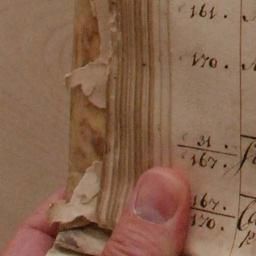 161.
170.
31.
167.
167.
170.